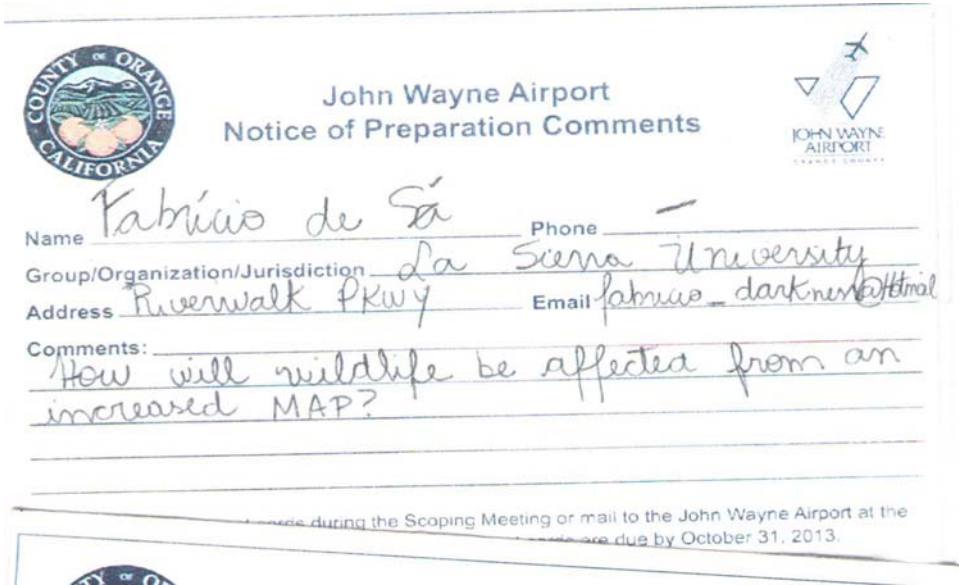 COUNTY OF ORANGE
CALIFORNIA
John Wayne Airport
Notice of Preparation Comments
JOHN WAYNE
AIRPORT
ORANGE COUNTY
Name Fabrício de Sá Phone –
Group/Organization/Jurisdiction La Sierra University
Address Riverwalk PKWY Email fabricio_darkness@Hotmail
Comments:
How will wildlife be affected from an
increased MAP?
during the Scoping Meeting or mail to the John Wayne Airport at the
are due by October 31, 2013.